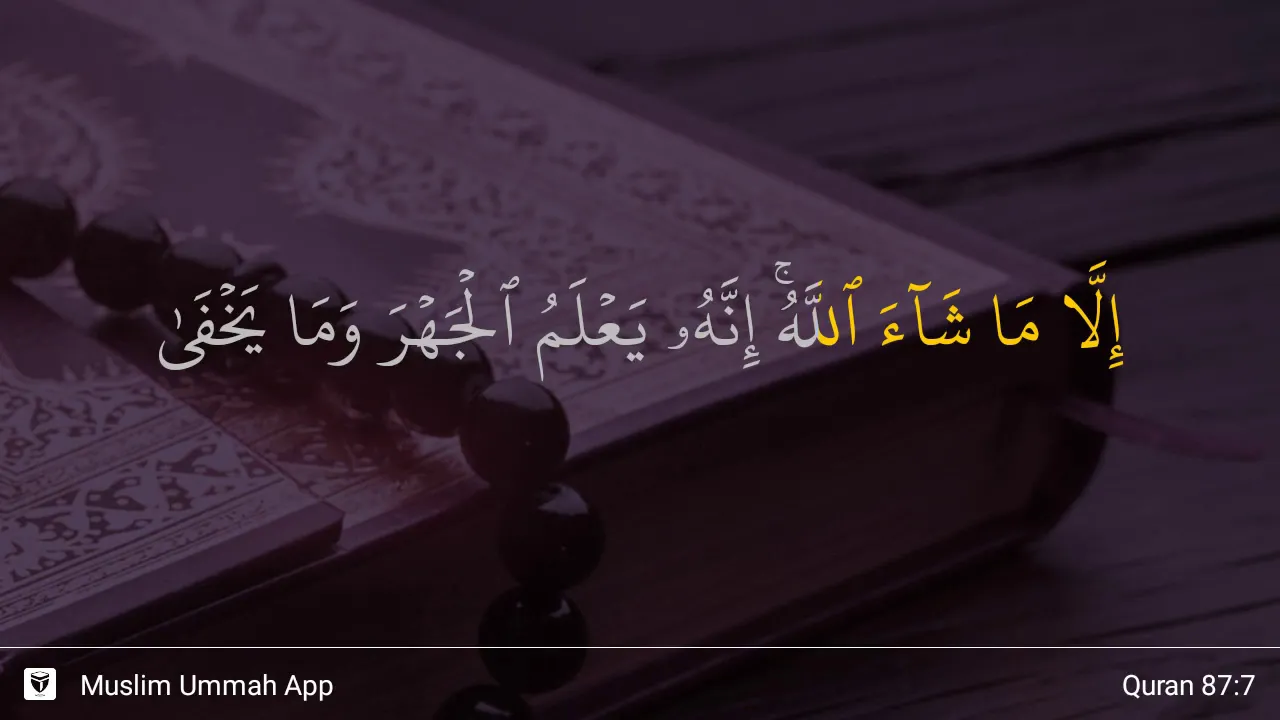 إِلَّا مَا شَآءَ ٱللَّهُۚ إِنَّهُۥ يَعۡلَمُ ٱلۡجَهۡرَ وَمَا يَخۡفَىٰ
Muslim Ummah App
Quran 87:7